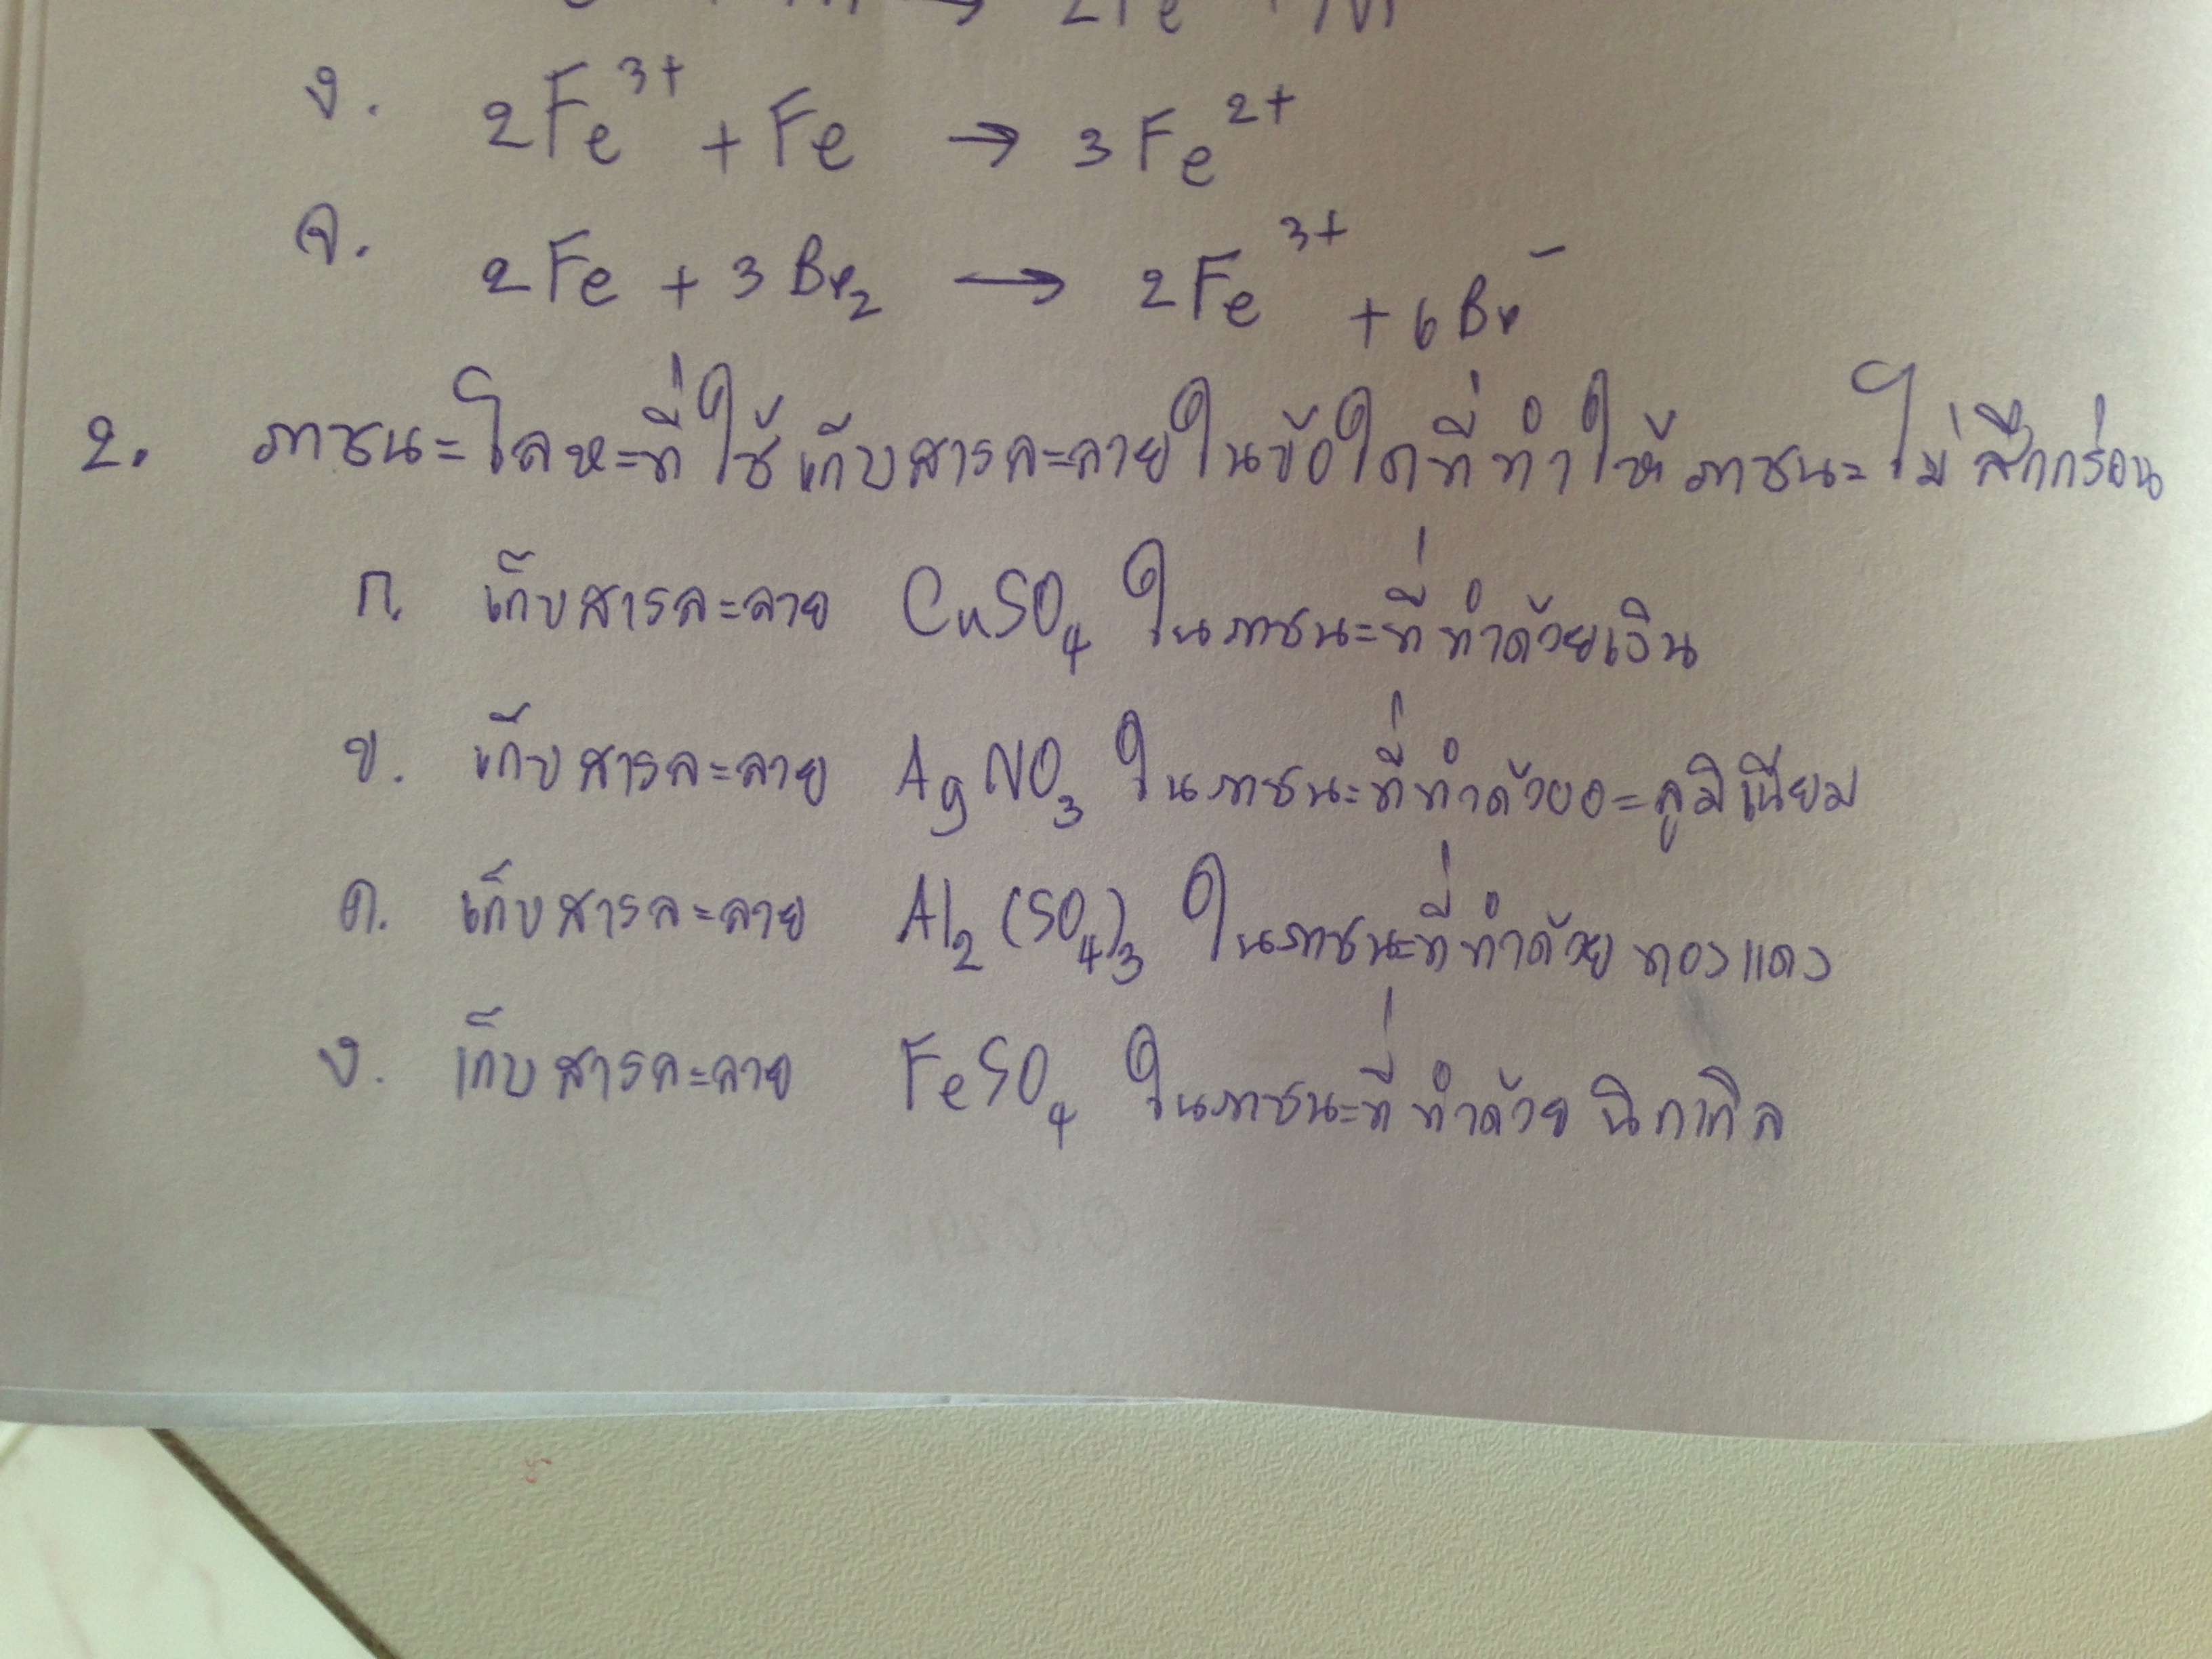 ง. 2Fe³⁺ + Fe → 3Fe²⁺
จ. 2Fe + 3Br₂ → 2Fe³⁺ + 6Br⁻
2. ภาชนะโลหะที่ใช้เก็บสารละลายในข้อใดที่ทำให้ภาชนะไม่สึกกร่อน
ก. เก็บสารละลาย CuSO₄ ในภาชนะที่ทำด้วยเงิน
ข. เก็บสารละลาย AgNO₃ ในภาชนะที่ทำด้วยอะลูมิเนียม
ค. เก็บสารละลาย Al₂(SO₄)₃ ในภาชนะที่ทำด้วยทองแดง
ง. เก็บสารละลาย FeSO₄ ในภาชนะที่ทำด้วยนิกเกิล